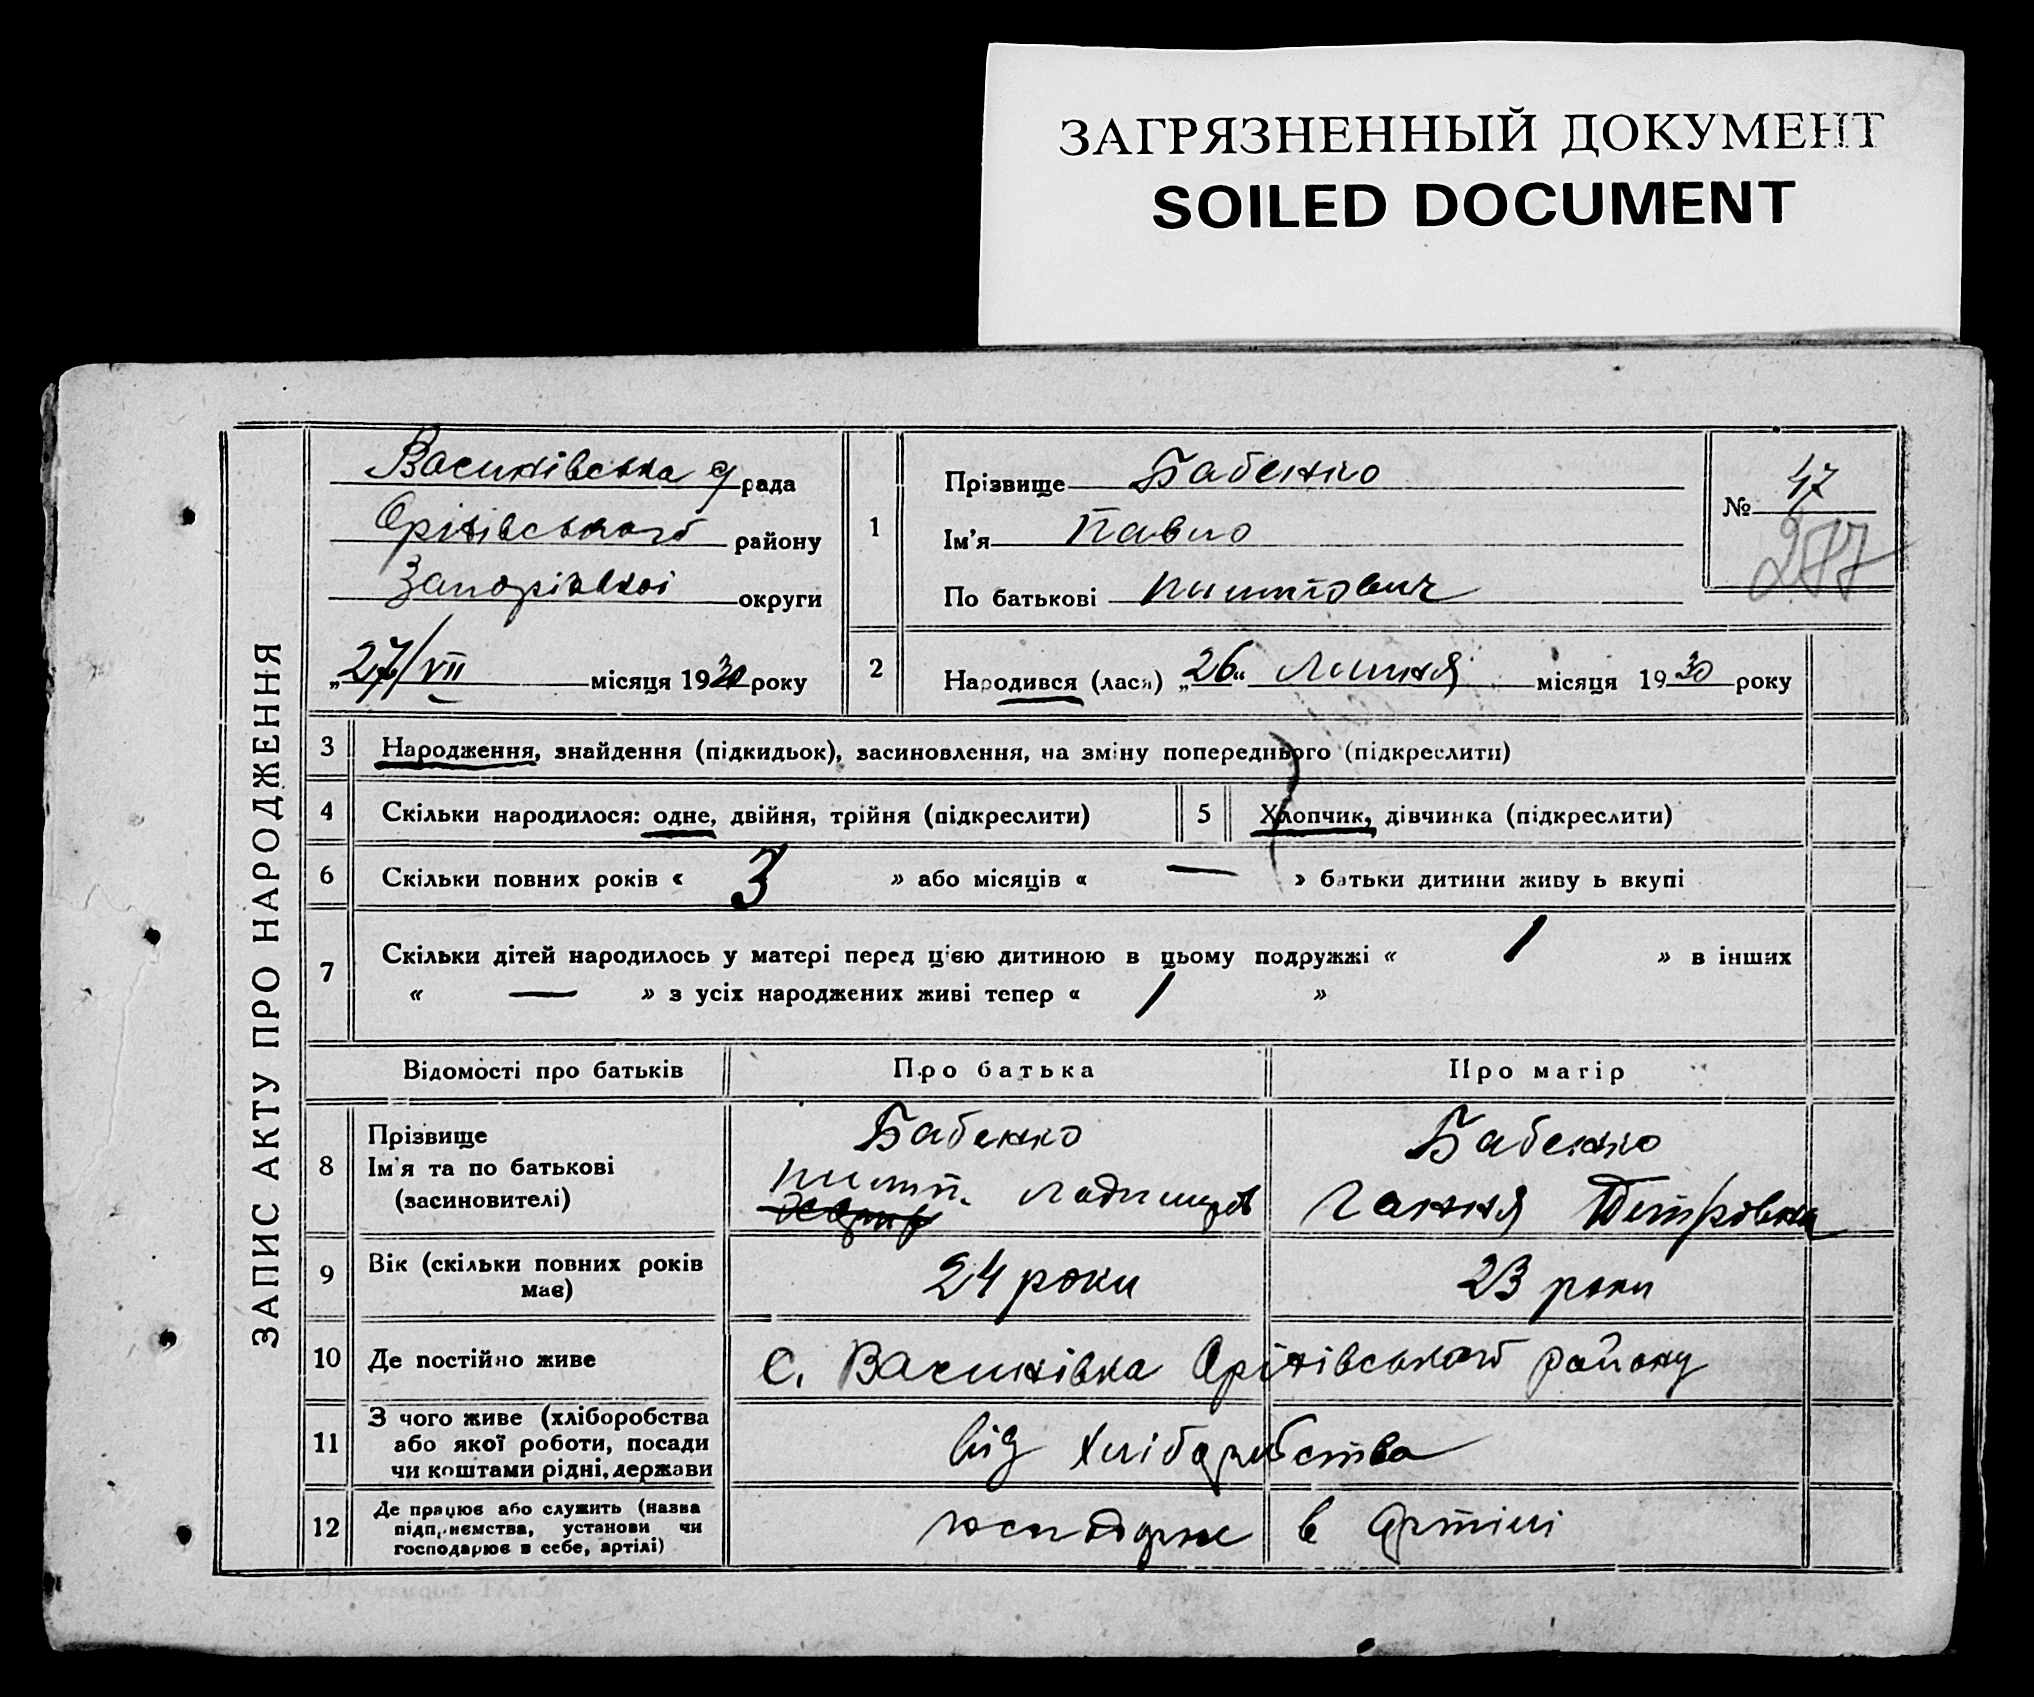 ЗАГРЯЗНЕННЫЙ ДОКУМЕНТ
SOILED DOCUMENT
ЗАПИС АКТУ ПРО НАРОДЖЕННЯ
Василівська рада
Оріхівського району
Запорізької округи
„27/VII місяця 1930 року
1
Прізвище Бабенко
Ім'я Павло
По батькові Пилипович
№ 47
277
2 Народився (лася) „26" Липня місяця 1930 року
3 Народження, знайдення (підкидьок), засиновлення, на зміну попереднього (підкреслити)
4 Скільки народилося: одне, двійня, трійня (підкреслити) 5 Хлопчик, дівчинка (підкреслити)
6 Скільки повних років « 3 » або місяців « — » батьки дитини живуть вкупі
7 Скільки дітей народилось у матері перед цією дитиною в цьому подружжі « 1 » в інших
« — » з усіх народжених живі тепер « 1 »
Відомості про батьків Про батька Про матір
8 Прізвище Бабенко Бабенко
Ім'я та по батькові Пилип Ганна Петрівна
(засиновителі)
9 Вік (скільки повних років має) 24 роки 23 роки
10 Де постійно живе с. Василівка Оріхівського району
11 З чого живе (хліборобства
або якої роботи, посади
чи коштами рідні, держави від хліборобства
12 Де працює або служить (назва
підприємства, установи чи
господарює в себе, артілі) в Артілі